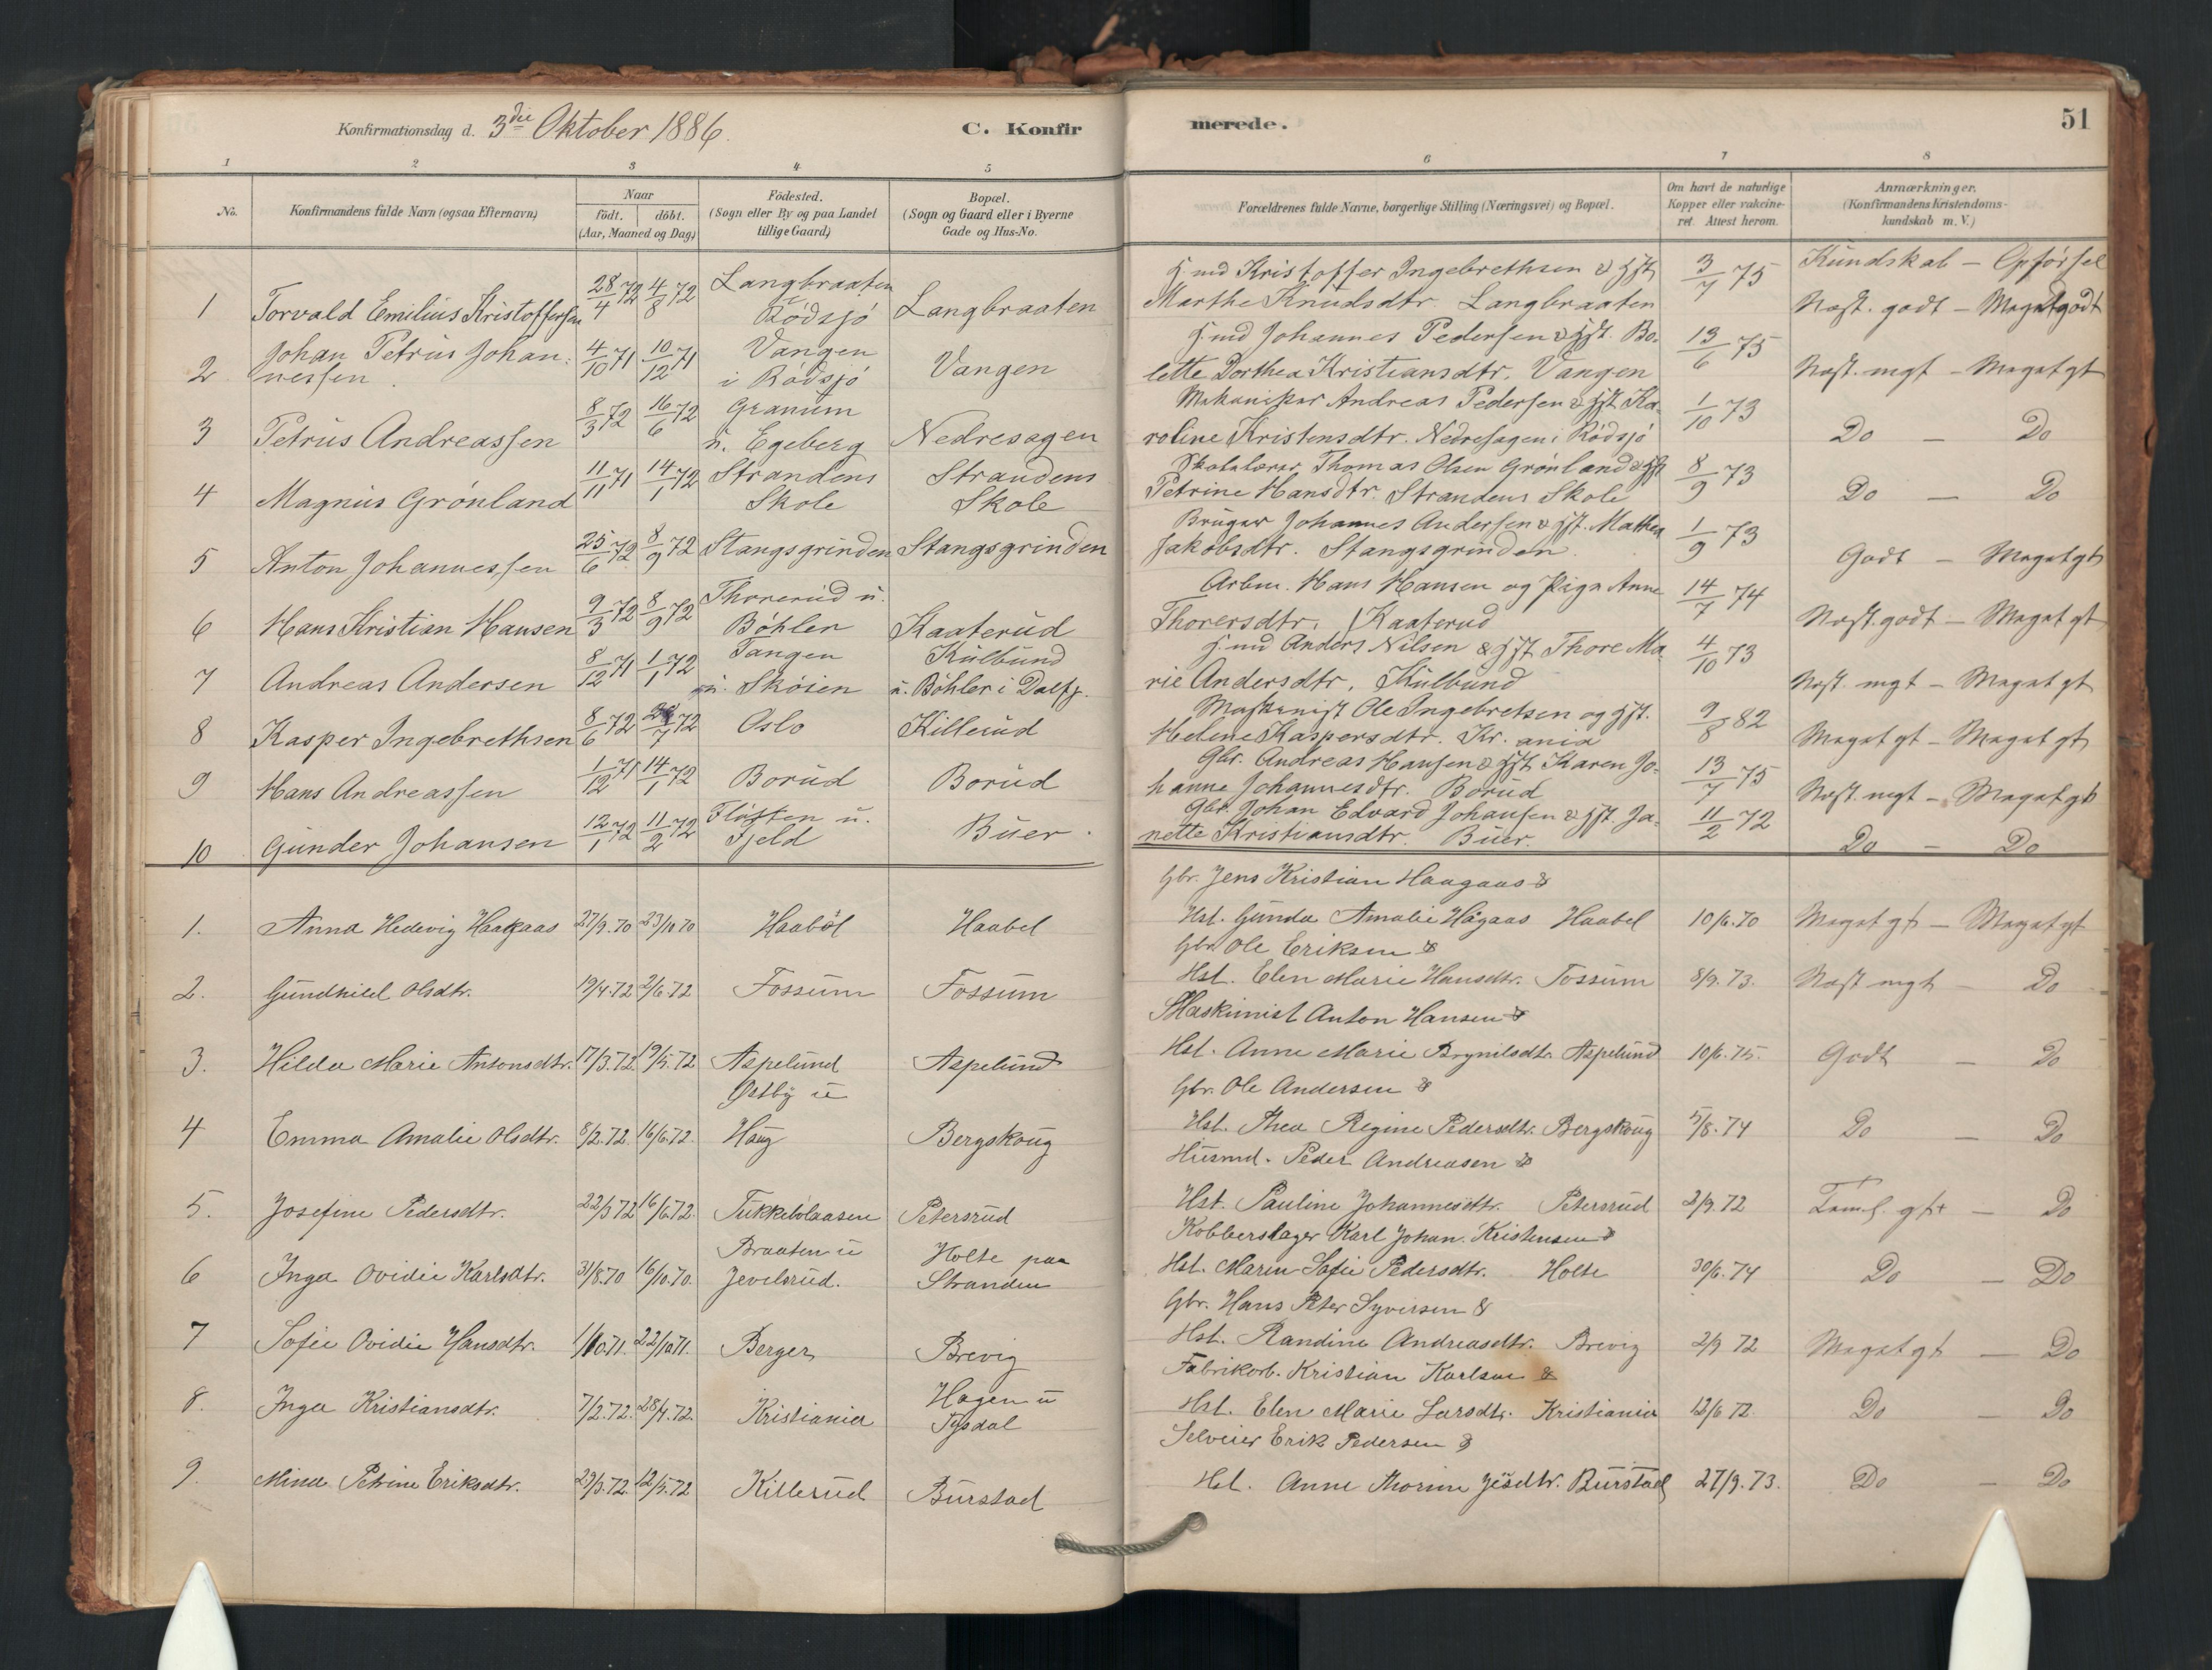 Konfirmationsdag d. 3die Oktober 1886. C. Konfirmerede. 51
1 2 3 4 5 6 7 8
No. Konfirmandens fulde Navn (ogsaa Efternavn) Naar födt. döbt. (Aar, Maaned og Dag) Födested. (Sogn eller By og paa Landet tillige Gaard) Bopæl. (Sogn og Gaard eller i Byerne Gade og Hus-No. Forældrenes fulde Navne, borgerlige Stilling (Næringsvei) og Bopæl. Om havt de naturlige Kopper eller vakcineret Attest herom. Anmærkninger. (Konfirmandens Kristendomskundskab m. V.)
Kundskab — Opførsel
1 Torvald Emilius Kristoffersen 28/4 72 4/8 72 Langbraaten i Rödsjö Langbraaten
Kristoffer Ingebrethsen & Hst Marthe Knudsdtr. Langbraaten 3/7 75 Næst. godt — Megetgodt
2 Johan Petrus Johannessen. 4/10 71 10/12 71 Vangen i Rödsjö Vangen
Johannes Pedersen & Hst. Bolette Dorthea Kristiansdtr. Vangen 13/6 75 Næst. mgt — Meget gt
3 Petrus Andreassen 8/3 72 16/6 72 Granum u. Egeberg Nedresagen
Andreas Pedersen & Hst Karoline Kristensdtr. Nedresagen i Rödsjö 1/10 73 Do — Do
4 Magnus Grönland 11/11 71 14/1 72 Strandens Skole Strandens Skole
Skolelærer Thomas Olsen Grönland & Hst Petrine Hansdtr. Strandens Skole 8/9 73 Do — Do
5 Anton Johannessen 25/6 72 8/9 72 Stangsgrinden Stangsgrinden
Bruger Johannes Andersen & Hst. Mathea Jakobsdtr. Stangsgrinden. 1/9 73 Godt — Meget gt
6 Hans Kristian Hansen 9/3 72 8/9 72 Thorerud u. Böhler Kaaterud
Arbm. Hans Hansen og Pige Anne Thorersdtr. Kaaterud 14/7 74 Næst. godt — Meget gt
7 Andreas Andersen 8/12 71 1/1 72 Tangen u. Sköien Kulbund u. Böhler i
Anders Nilsen & Hst Thore Marie Andersdtr. Kulbund 4/10 73 Næst. mgt — Meget gt
8 Kasper Ingebrethsen 8/6 72 /7 72 Oslo Killerud
Maskinist Ole Ingebretsen og Hst. Helene Kaspersdtr. Kr. ania 9/8 82 Meget gt — Meget gt
9 Hans Andreassen 1/12 71 14/1 72 Borud Borud
Gbr. Andreas Hansen & Hst Karen Johanne Johannesdtr. Borud 13/7 75 Næst. mgt — Meget gt
10 Gunder Johansen 12/1 72 11/2 72 Fløtten u. Fjeld Buer.
Gbr. Johan Edvard Johansen & Hst. Janette Kristiansdtr. Buer. 11/2 72 Do — Do
1. Anna Hedevig Haagaas 27/9.70 23/10 70 Haaböl Haabel
Gbr. Jens Kristian Haagaas & Hst. Gunda Amalie Hågaas Haabel 10/6.70 Meget gt — Meget gt
2. Gundhild Olsdtr. 19/4.72 2/6.72 Fossum Fossum
Gbr. Ole Eriksen & Hst. Elen Marie Hansdtr. Fossum 8/9.73. Næst mgt — Do
3. Hilda Marie Antonsdtr. 17/3.72. 19/5.72 Aspelund Aspelund
Maskinist Anton Hansen & Hst. Anne Marie Brynilsdtr. Aspelund 10/6.75. Godt — Do
4 Emma Amalie Olsdtr. 8/2.72. 16/6.72. Østby u Haug Bergskoug
Gbr. Ole Andersen & Hst. Thea Regine Pedersdtr. Bergskoug 5/8.74 Do — Do
5. Josefine Pedersdtr. 22/3 72 16/6.72. Tukkebölaasen Petersrud
Husmd. Peder Andreasen & Hst. Pauline Johannesdtr. Petersrud 2/9.72 Teml. gt — Do
6 Inga Ovidie Karlsdtr. 31/8.70 16/10.70. Braaten u Jevelsrud. Holte paa Stranden
Kobberslager Karl Johan Kristensen & Hst. Maren Sofie Pedersdtr. Holte 30/6.74 Do — Do
7 Sofie Ovidie Hansdtr. 1/10.71. 22/10.71. Berger Brevig
Gbr. Hans Peter Syversen & Hst. Randine Andreasdtr. Brevig 2/9 72 Meget gt — Do
8. Inga Kristiansdtr. 7/2.72. 28/4.72. Kristiania Hagen u Tysdal
Fabrikarb. Kristian Karlsen & Hst. Elen Marie Larsdtr. Kristiania 12/6 72 Do — Do
9. Mina Petrine Eriksdtr. 29/3.72. 12/5.72 Killerud Burstad
Selveier Erik Pedersen & Hst. Anne Burstad 27/9.73. Do — Do